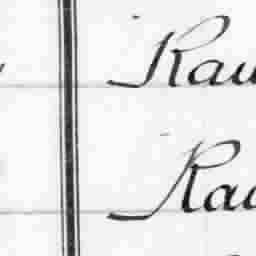 Rau
Rau